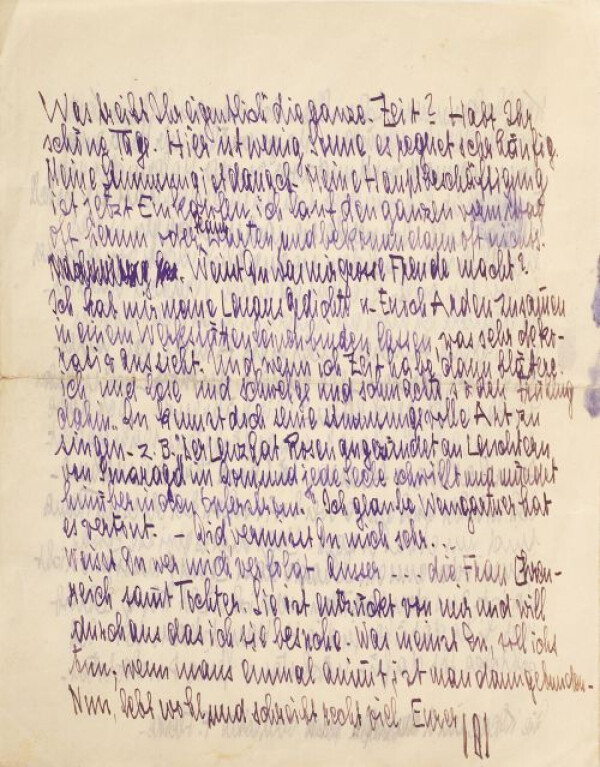 Was treibt Ihr eigentlich die ganze Zeit? Habt Ihr
schöne Tage. Hier ist wenig Sonne es regnet sehr häufig.
Meine Stimmung ist danach. Meine Hauptbeschäftigung
ist jetzt Einkaufen, ich lauf den ganzen
oft herum oder warten und bekomme dann oft nichts.
Weisst Du was mir grosse Freude macht?
Ich hab mir meine Lenaus Gedichte u. Enoch Arden zusammen
in einem binden lassen, was sehr dekor-
ativ aussieht. Und wenn ich Zeit habe, dann blättere
ich und lese und schwelge und so den
dahin. Du kennst doch seine stimmungsvolle Art zu
singen z. B. "Der Lenz hat Rosen angezündet an Leuchtern
von Smaragd im Dom und jede Seele schwillt und mündet
hinüber in den Opferstrom." Ich glaube Weingartner hat
es vertont. – Und vermisst Du mich sehr...
Weisst Du wer mich verfolgt unser .... die Frau Ehren-
reich samt Tochter. Sie ist entzückt von mir und will
durchaus das ich sie besuche. Was meinst Du, soll ichs
tun, wenn mans einmal nimmt ist man dann gebunden.
Nun, lebt wohl und schreibt recht viel Eurer